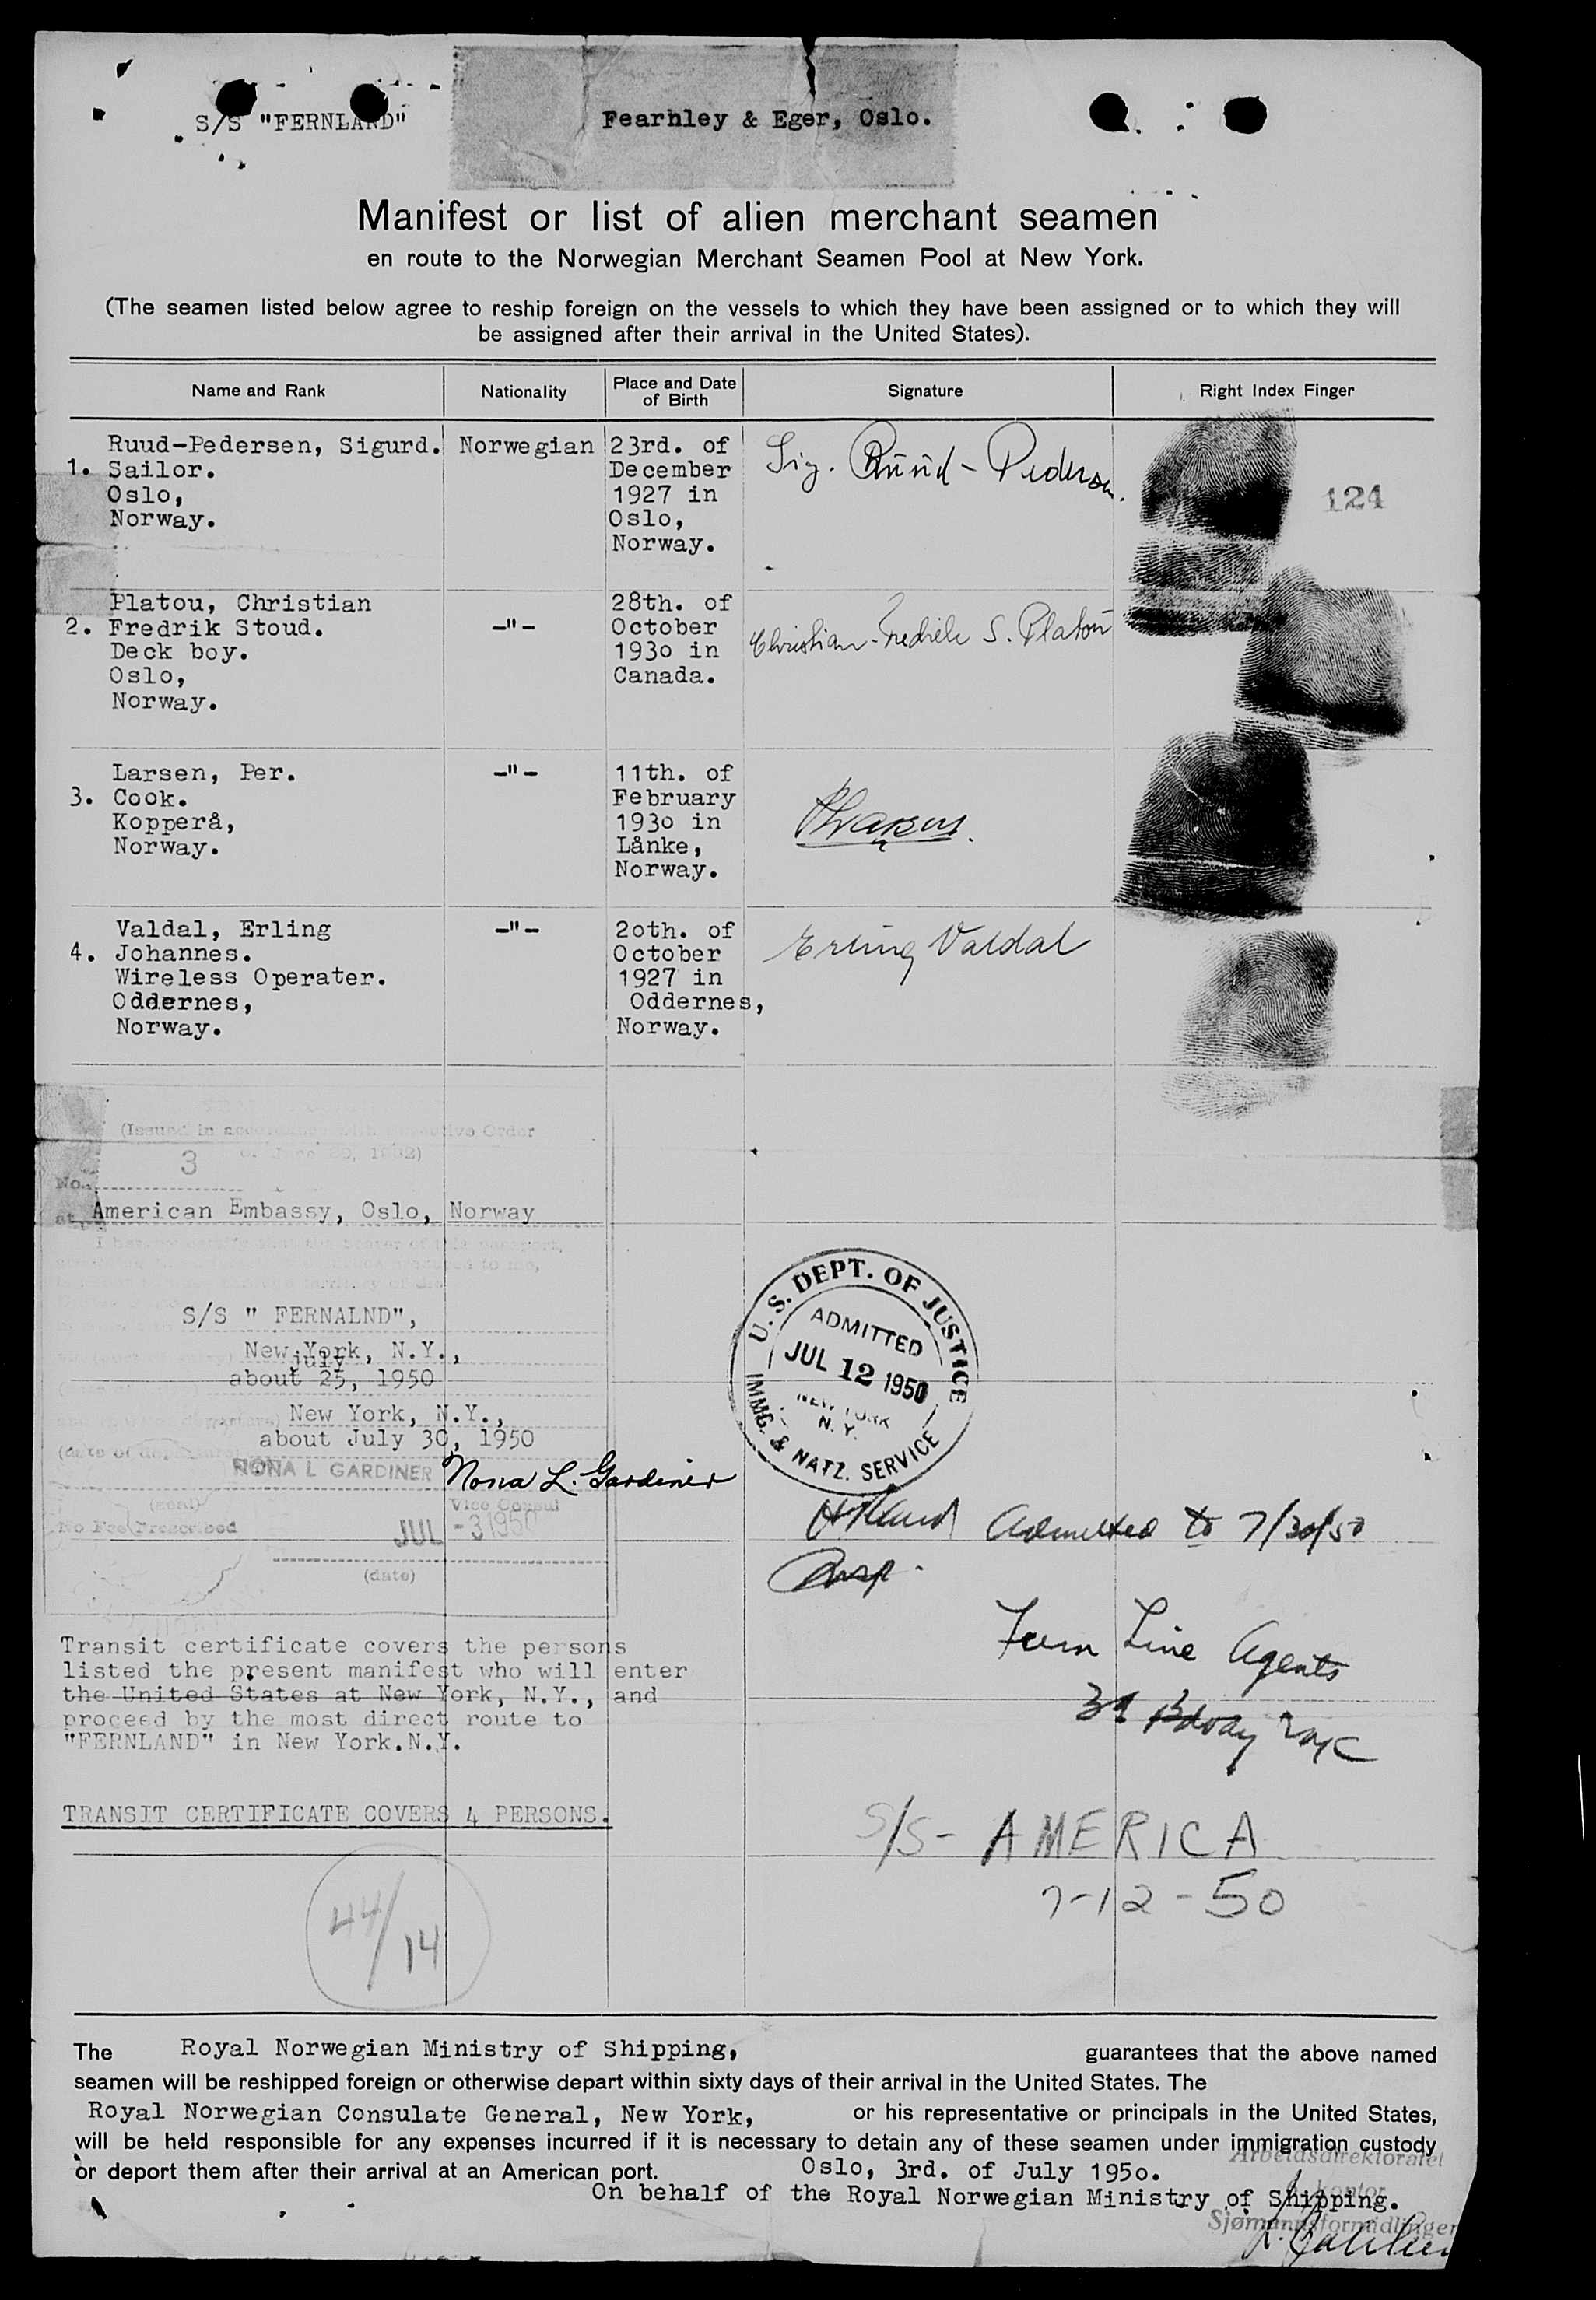 S/S "FERNLAND"
Fearnley & Eger, Oslo.
Manifest or list of alien merchant seamen
en route to the Norwegian Merchant Seamen Pool at New York.
(The seamen listed below agree to reship foreign on the vessels to which they have been assigned or to which they will
be assigned after their arrival in the United States).
Name and Rank
Nationality
Place and Date
of Birth
Signature
Right Index Finger
1.
Ruud-Pedersen, Sigurd.
Sailor.
Oslo,
Norway.
Norwegian
23rd. of
December
1927 in
Oslo,
Norway.
Sig. Ruud-Pedersen.
124
2.
Platou, Christian
Fredrik Stoud.
Deck boy.
Oslo,
Norway.
-"-
28th. of
October
193o in
Canada.
Christian-Fredrik S. Platou
3.
Larsen, Per.
Cook.
Kopperå,
Norway.
-"-
11th. of
February
193o in
Lånke,
Norway.
PLarsen.
4.
Valdal, Erling
Johannes.
Wireless Operater.
Oddernes,
Norway.
-"-
2oth. of
October
1927 in
Oddernes,
Norway.
Erling Valdal
(Issued in accordance with Executive Order
3
No.
at American Embassy, Oslo, Norway
S/S " FERNALND",
New York, N.Y.,
july
about 25, 1950
New York, N.Y.,
about July 30, 1950
NONA L GARDINER
Nona L. Gardiner
(seal)
Vice Consul
No Fee Prescribed
JUL -3 1950
(date)
U. S. DEPT. OF JUSTICE
ADMITTED
JUL 12 1950
NEW YORK
N. Y.
IMMG. & NATZ. SERVICE
Admitted to 7/30/50
Insp.
Fern Line Agents
39 Bdway NYC
Transit certificate covers the persons
listed the present manifest who will enter
the United States at New York, N.Y., and
proceed by the most direct route to
"FERNLAND" in New York.N.Y.
TRANSIT CERTIFICATE COVERS 4 PERSONS.
S/S- AMERICA
7-12-50
44/14
The Royal Norwegian Ministry of Shipping, guarantees that the above named
seamen will be reshipped foreign or otherwise depart within sixty days of their arrival in the United States. The
Royal Norwegian Consulate General, New York, or his representative or principals in the United States,
will be held responsible for any expenses incurred if it is necessary to detain any of these seamen under immigration custody
or deport them after their arrival at an American port.
Oslo, 3rd. of July 195o.
On behalf of the Royal Norwegian Ministry of Shipping.
Arbeidsdirektoratet
kontor
Sjømannsformidlingen